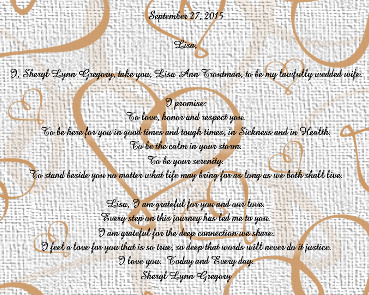 September 27, 2015
Lisa,
I, Sheryl Lynn Gregory, take you, Lisa Ann Troutman, to be my lawfully wedded wife.
I promise:
To love, honor and respect you.
To be here for you in good times and tough times, in Sickness and in Health.
To be the calm in your storm.
To be your serenity.
To stand beside you no matter what life may bring for as long as we both shall live.
Lisa, I am grateful for you and our love.
Every step on this journey has led me to you.
I am grateful for the deep connection we share.
I feel a love for you that is so true, so deep that words will never do it justice.
I love you. Today and Every day.
Sheryl Lynn Gregory